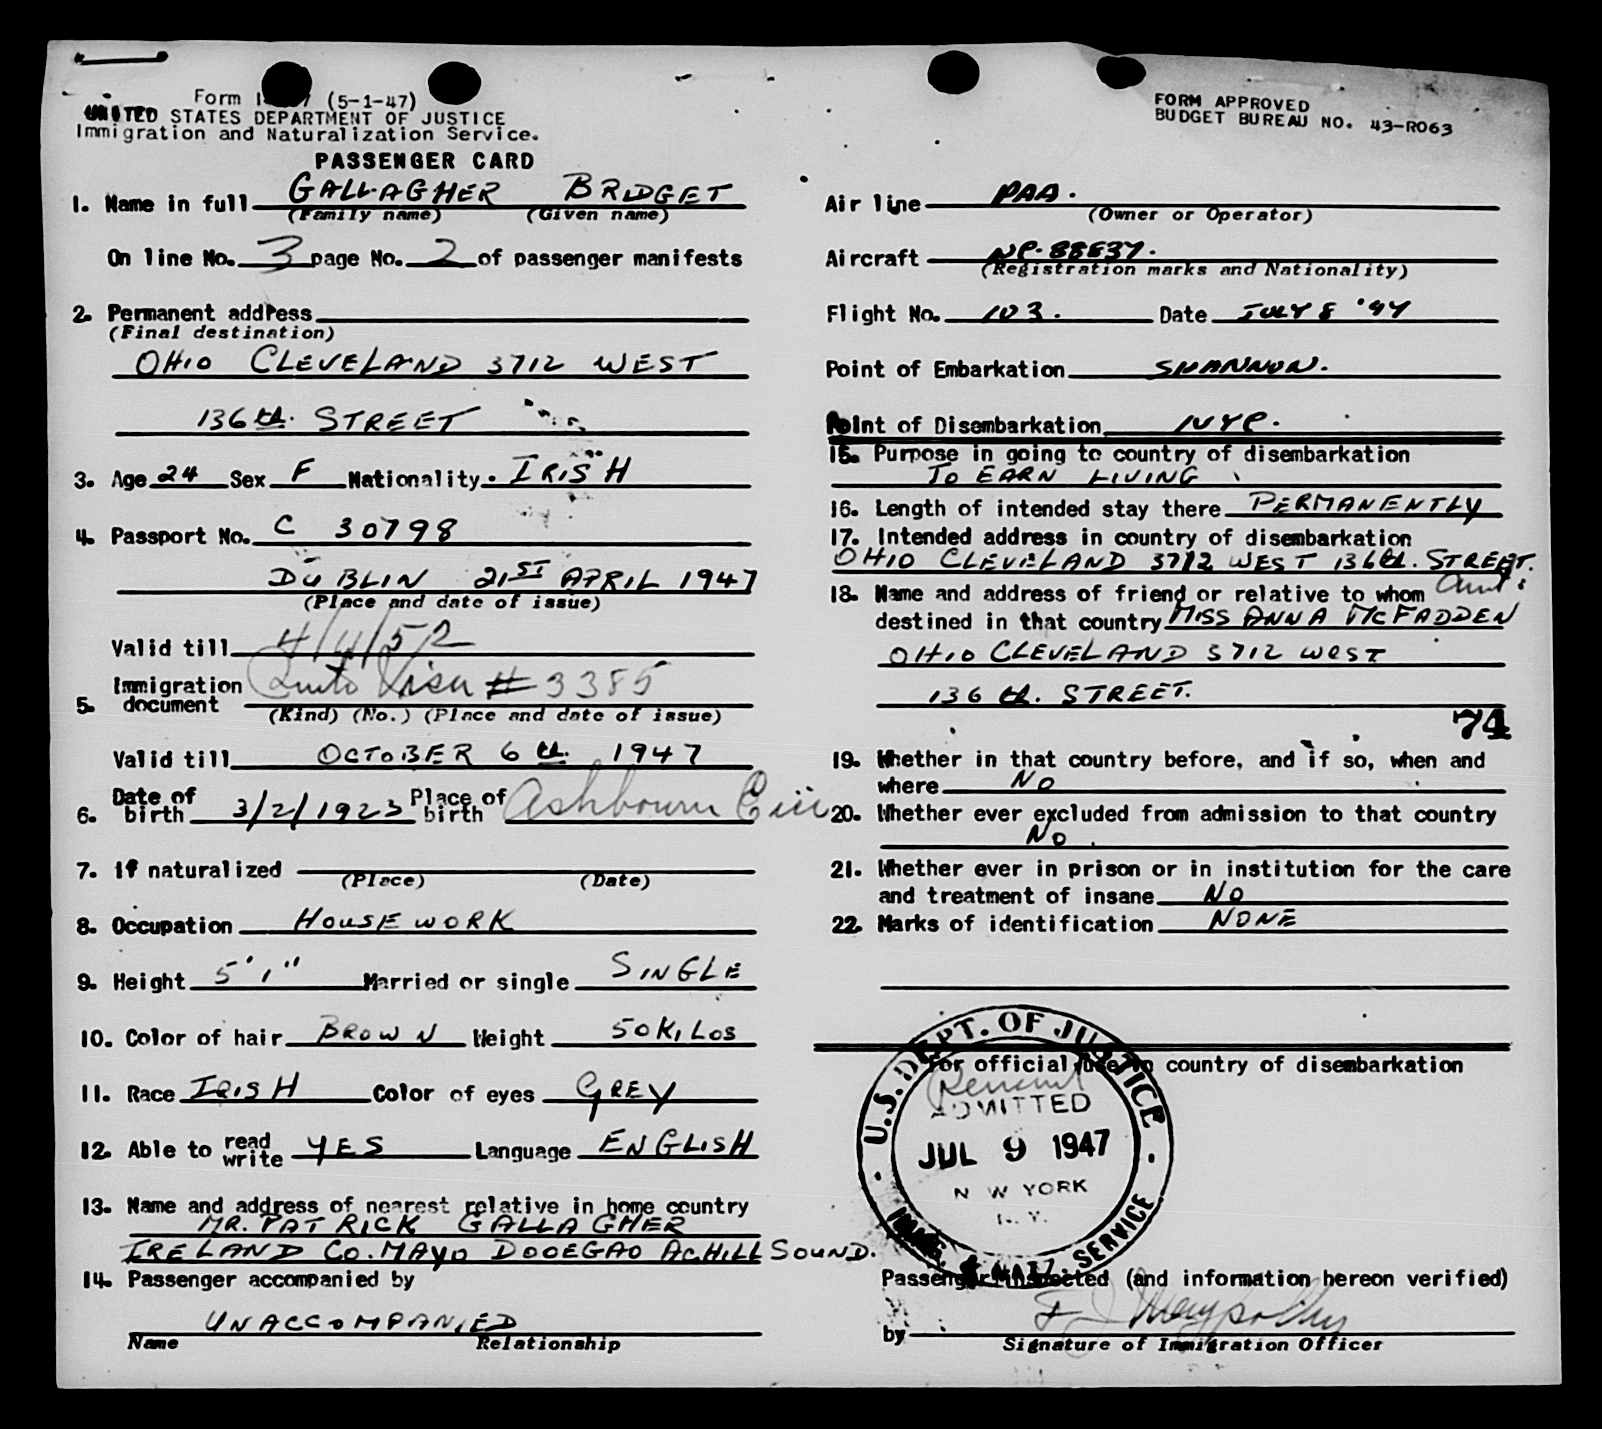 Form I (5-1-47)
UNITED STATES DEPARTMENT OF JUSTICE
Immigration and Naturalization Service.
PASSENGER CARD
1. Name in full GALLAGHER BRIDGET
(Family name) (Given name)
On line No. 3 page No. 2 of passenger manifests
2. Permanent address
(Final destination)
OHIO CLEVELAND 3712 WEST
136th. STREET
3. Age 24 Sex F Nationality. IRISH
4. Passport No. C 30798
DUBLIN 21ST APRIL 1947
(Place and date of issue)
Valid till 4/4/52
5. Immigration document Quota Visa # 3385
(Kind) (No.) (Place and date of issue)
Valid till OCTOBER 6th. 1947
6. Date of birth 3/2/1923 Place of birth Ashbourn
7. If naturalized
(Place) (Date)
8. Occupation HOUSEWORK
9. Height 5'1" Married or single SINGLE
10. Color of hair BROWN Weight 50 KILOS
11. Race IRISH Color of eyes GREY
12. Able to read write YES Language ENGLISH
13. Name and address of nearest relative in home country
MR. PATRICK GALLAGHER
IRELAND CO. MAYO DOOEGAO ACHILL SOUND.
14. Passenger accompanied by
UNACCOMPANIED
Name Relationship
FORM APPROVED
BUDGET BUREAU NO. 43-R063
Air line PAA.
(Owner or Operator)
Aircraft
(Registration marks and Nationality)
Flight No. 103. Date JULY 8 '47
Point of Embarkation SHANNON.
Point of Disembarkation NYC.
15. Purpose in going to country of disembarkation
TO EARN LIVING
16. Length of intended stay there PERMANENTLY
17. Intended address in country of disembarkation
OHIO CLEVELAND 3712 WEST 136th. STREET.
18. Name and address of friend or relative to whom Aunt:
destined in that country MISS ANNA McFADDEN
OHIO CLEVELAND 3712 WEST
136th. STREET.
74
19. Whether in that country before, and if so, when and
where NO
20. Whether ever excluded from admission to that country
NO.
21. Whether ever in prison or in institution for the care
and treatment of insane NO
22. Marks of identification NONE
For official use in country of disembarkation
U.S. DEPT. OF JUSTICE
ADMITTED
JUL 9 1947
NEW YORK
N.Y.
SERVICE
Passenger inspected (and information hereon verified)
by
Signature of Immigration Officer